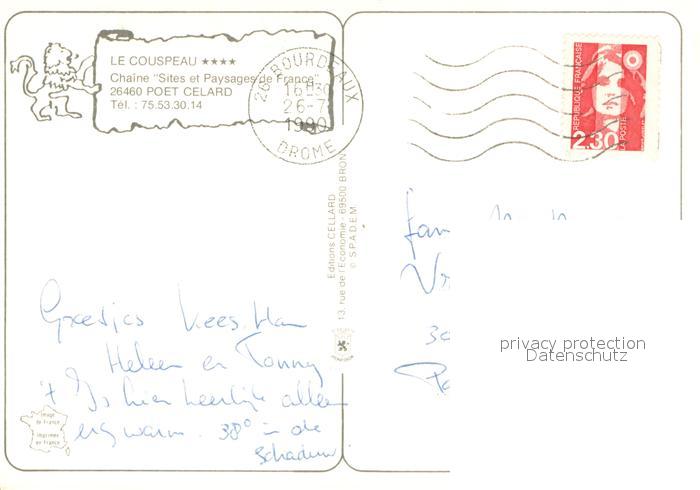 LE COUSPEAU ★★★★
Chaîne "Sites et Paysages de France"
26460 POET CELARD
Tél. : 75.53.30.14
26 BOURDEAUX
16H30
26-7
1990
DROME
RÉPUBLIQUE FRANÇAISE
2,30
LA POSTE
Editions CELLARD
13, rue de l'Economie - 69500 BRON
© S.P.A.D.E.M.
Groetjes Kees, Han
Heleen en Tonny
't Is hier heerlijk alleen
erg warm. 38° in de
schaduw.
Image
de France
Imprimée
en France
fam
30
privacy protection
Datenschutz